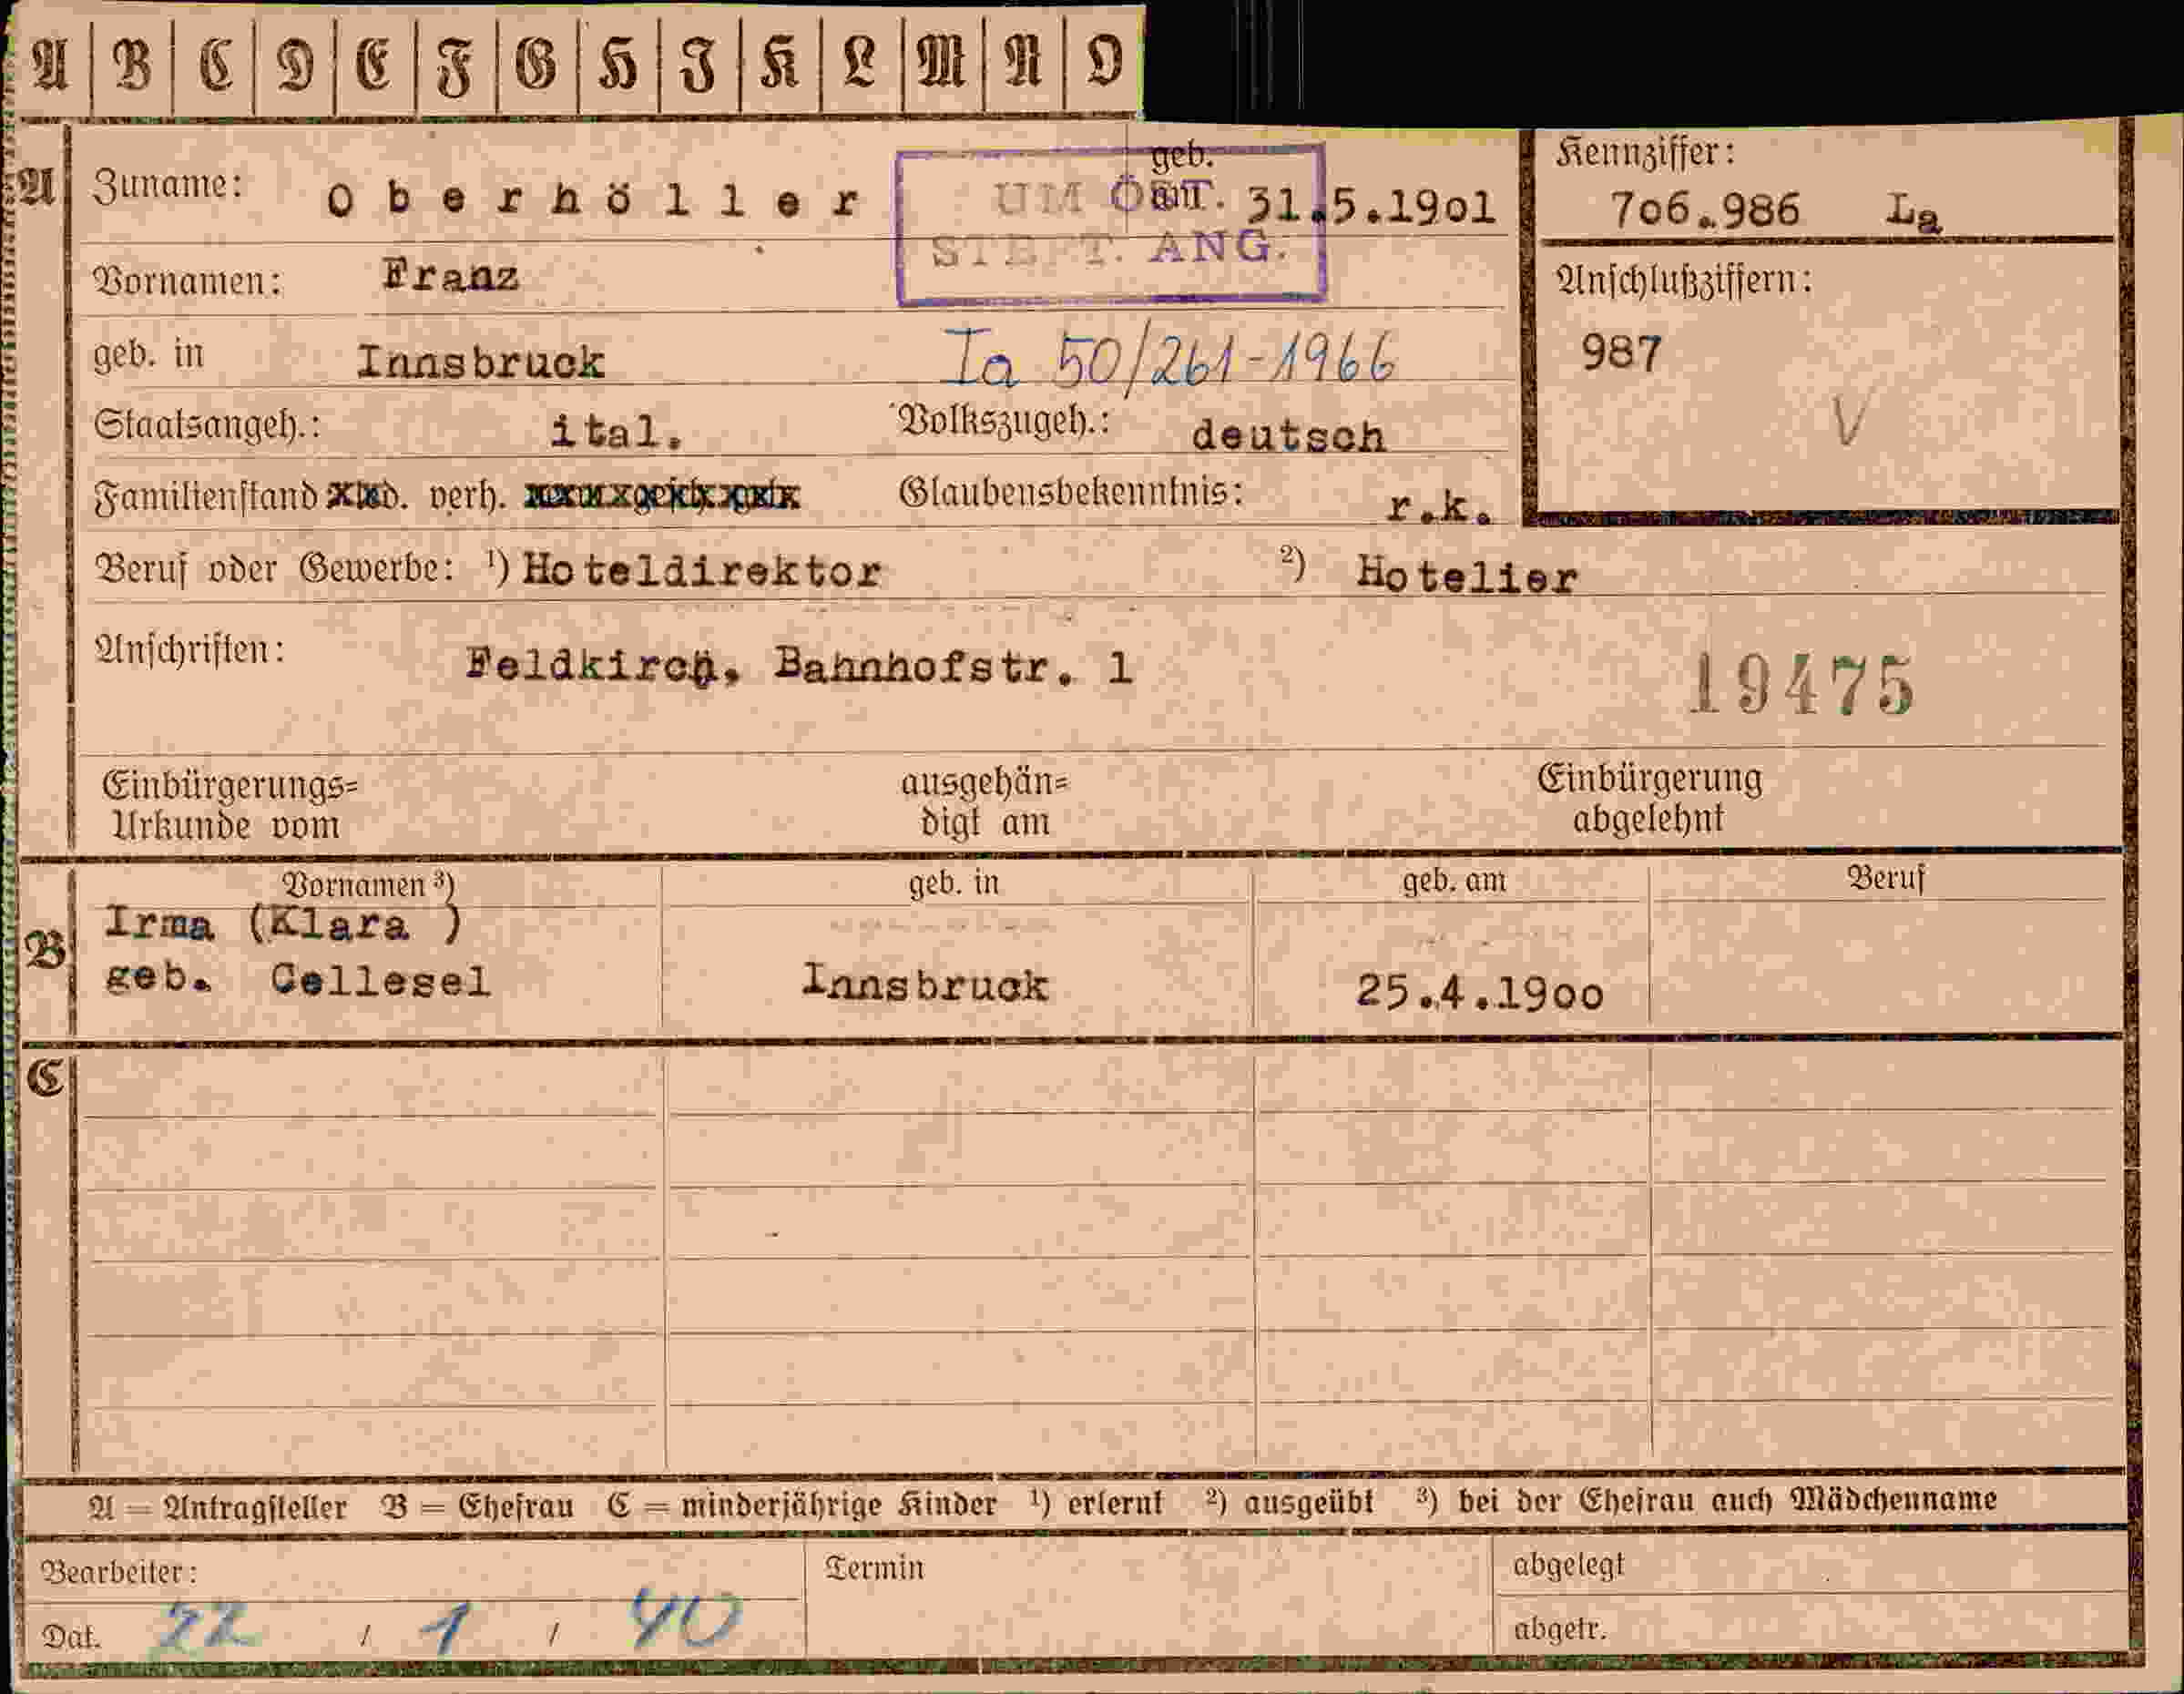 A B C D E F G H I K L M N O
A Zuname: Oberhöller geb. am 31.5.1901
UM ÖST.
STBFT. ANG.
Kennziffer:
706.986 La
Vornamen: Franz
Anschlußziffern:
987
V
geb. in Innsbruck
Ia 50/261-1966
Staatsangeh.: ital. Volkszugeh.: deutsch
Familienstand verh. Glaubensbekenntnis: r.k.
Beruf oder Gewerbe: ¹) Hoteldirektor ²) Hotelier
Anschriften: Feldkirch, Bahnhofstr. 1
19475
Einbürgerungs= ausgehän= Einbürgerung
Urkunde vom digt am abgelehnt
Vornamen ³) geb. in geb. am Beruf
B Irma (Klara )
geb. Gellesel Innsbruck 25.4.1900
C
A = Antragsteller B = Ehefrau C = minderjährige Kinder ¹) erlernt ²) ausgeübt ³) bei der Ehefrau auch Mädchenname
Bearbeiter: Termin abgelegt
Dat. 22 / 1 / 40 abgetr.